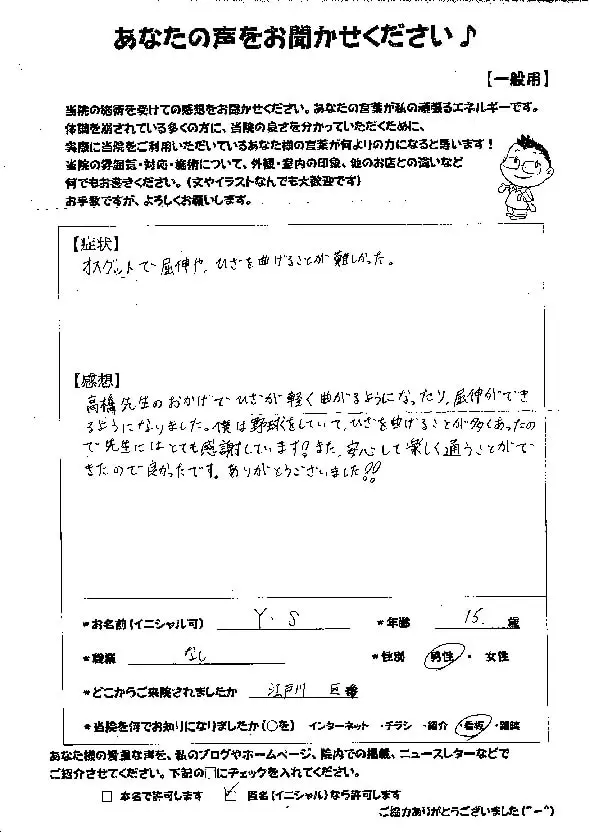 あなたの声をお聞かせください♪
【一般用】
当院の施術を受けての感想をお聞かせください。あなたの言葉が私の頑張るエネルギーです。
体調を崩されている多くの方に、当院の良さを分かっていただくために、
実際に当院をご利用いただいているあなた様の言葉が何よりの力になると思います!
当院の雰囲気・対応・施術について、外観・室内の印象、他のお店との違いなど
何でもお書きください。(文やイラストなんでも大歓迎です)
お手数ですが、よろしくお願いします。
【症状】
オスグットで屈伸や、ひざを曲げることが難しかった。
【感想】
高橋先生のおかげでひざが軽く曲がるようになったり、屈伸ができ
るようになりました。僕は野球をしていて、ひざを曲げることが多くあったの
で先生にはとても感謝しています!また、安心して楽しく通うことがで
きたので良かったです。ありがとうございました!!
*お名前(イニシャル可) Y・S *年齢 15. 歳
*職業 なし *性別 男性・女性
*どこからご来院されましたか 江戸川 区
*当院を何でお知りになりましたか(○を) インターネット ・チラシ ・紹介 ・看板 ・雑誌
あなた様の貴重な声を、私のブログやホームページ、院内での掲載、ニュースレターなどで
ご紹介させてください。下記の□にチェックを入れてください。
□ 本名で許可します ☑ 匿名(イニシャル)なら許可します
ご協力ありがとうございました(^-^)